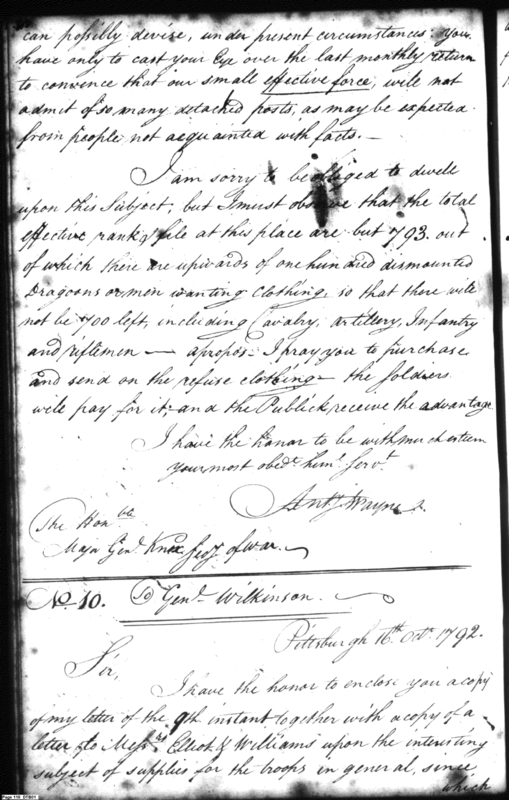 can possibly devise, under present circumstances. you
have only to cast your Eye over the last monthly return
to convence that our small effective force, will not
admit of so many detached posts, as may be expected
from people not acquainted with facts. —
I am sorry to be obliged to dwell
upon this Subject, but I must observe that the total
effective rank & file at this place are but 793. out
of which there are upwards of one hundred dismounted
Dragoons or men wanting Clothing, so that there will
not be 700 left, including Cavalry, artillery, Infantry
and riflemen — apropos — I pray you to purchase
and send on the refuse clothing — the Soldiers
will pay for it, and the Publick receive the advantage
I have the honor to be with much esteem
your most obedt. hume. Servt.
Anty. Wayne
The Honble
Major Genl. Knox Secy. of war.
No. 10. To Genl. Wilkinson.
Pittsburgh 16th. Octr. 1792.
Sir,
I have the honor to enclose you a copy
of my letter of the 9th instant together with a copy of a
letter to Messrs Elliot & Williams upon the interesting
subject of supplies for the troops in general, since
which